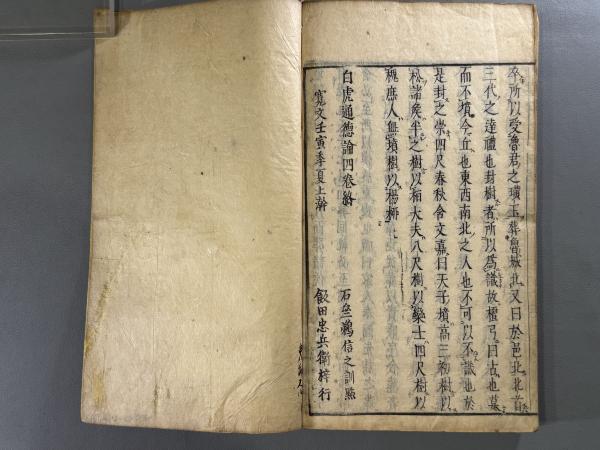 卒所以受魯君之璜玉葬魯城北又曰於邑北北首
三代之達禮也封樹者所以為識故檀弓曰古也墓
而不墳今丘也東西南北之人也不可以不識也於
是封之崇四尺春秋含文嘉曰天子墳高三仞樹以
松諸矦半之樹以柏大夫八尺樹以欒士四尺樹以
槐庶人無墳樹以楊柳
白虎通德論四卷終
石齋鵜信之訓點
寛文壬寅季夏上澣
飯田忠兵衛梓行